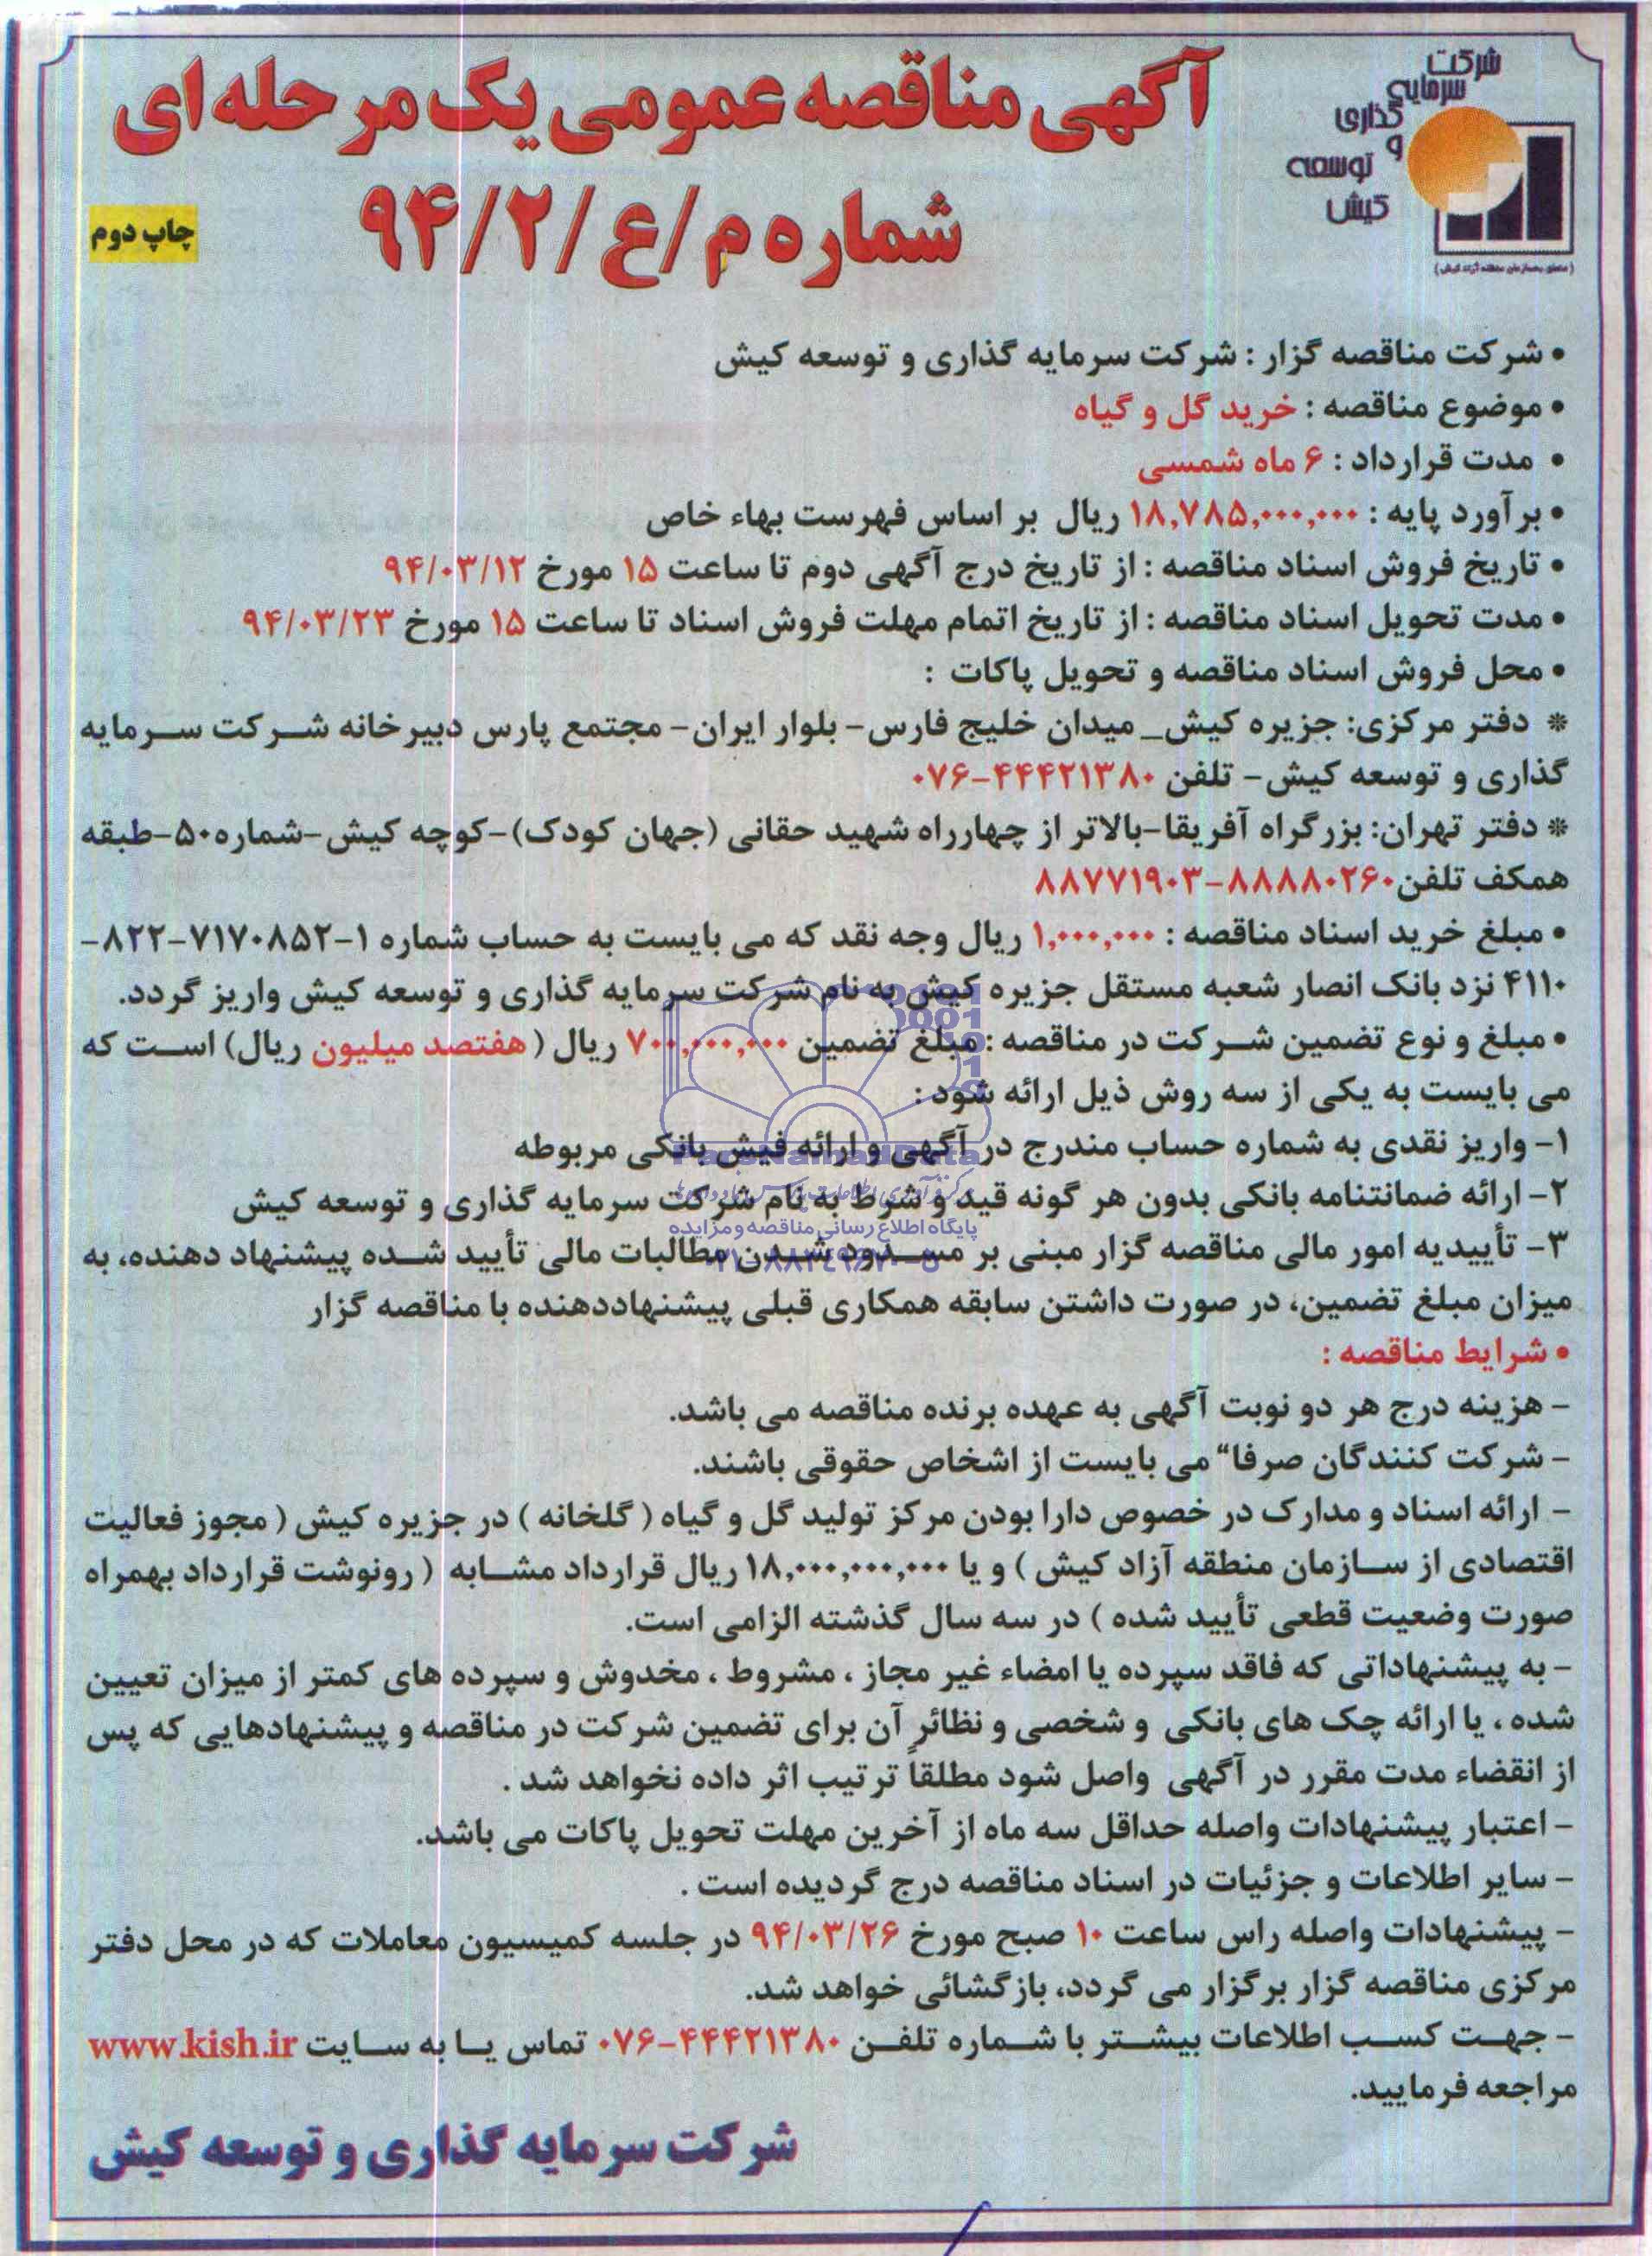 شرکت
سرمایه
گذاری
و
توسعه
کیش
( متعلق به سازمان منطقه آزاد کیش )
آگهی مناقصه عمومی یک مرحله ای
شماره م/ع/۹۴/۲
چاپ دوم
• شرکت مناقصه گزار : شرکت سرمایه گذاری و توسعه کیش
• موضوع مناقصه : خرید گل و گیاه
• مدت قرارداد : ۶ ماه شمسی
• برآورد پایه : ۱۸,۷۸۵,۰۰۰,۰۰۰ ریال بر اساس فهرست بهاء خاص
• تاریخ فروش اسناد مناقصه : از تاریخ درج آگهی دوم تا ساعت ۱۵ مورخ ۹۴/۰۳/۱۲
• مدت تحویل اسناد مناقصه : از تاریخ اتمام مهلت فروش اسناد تا ساعت ۱۵ مورخ ۹۴/۰۳/۲۳
• محل فروش اسناد مناقصه و تحویل پاکات :
* دفتر مرکزی: جزیره کیش_ میدان خلیج فارس- بلوار ایران- مجتمع پارس دبیرخانه شرکت سرمایه
گذاری و توسعه کیش- تلفن ۰۷۶-۴۴۴۲۱۳۸۰
* دفتر تهران: بزرگراه آفریقا-بالاتر از چهارراه شهید حقانی (جهان کودک)-کوچه کیش-شماره۵۰-طبقه
همکف تلفن۸۸۸۸۰۲۶۰-۸۸۷۷۱۹۰۳
• مبلغ خرید اسناد مناقصه : ۱,۰۰۰,۰۰۰ ریال وجه نقد که می بایست به حساب شماره ۱-۷۱۷۰۸۵۲-۸۲۲-
۴۱۱۰ نزد بانک انصار شعبه مستقل جزیره کیش به نام شرکت سرمایه گذاری و توسعه کیش واریز گردد.
• مبلغ و نوع تضمین شرکت در مناقصه : مبلغ تضمین ۷۰۰,۰۰۰,۰۰۰ ریال (هفتصد میلیون ریال) است که
می بایست به یکی از سه روش ذیل ارائه شود :
۱- واریز نقدی به شماره حساب مندرج در آگهی و ارائه فیش بانکی مربوطه
۲- ارائه ضمانتنامه بانکی بدون هر گونه قید و شرط به نام شرکت سرمایه گذاری و توسعه کیش
پایگاه اطلاع رسانی مناقصه و مزایده
۳- تأییدیه امور مالی مناقصه گزار مبنی بر مسدود شدن مطالبات مالی تأیید شده پیشنهاد دهنده، به
میزان مبلغ تضمین، در صورت داشتن سابقه همکاری قبلی پیشنهاددهنده با مناقصه گزار
• شرایط مناقصه :
- هزینه درج هر دو نوبت آگهی به عهده برنده مناقصه می باشد.
- شرکت کنندگان صرفا“ می بایست از اشخاص حقوقی باشند.
- ارائه اسناد و مدارک در خصوص دارا بودن مرکز تولید گل و گیاه ( گلخانه ) در جزیره کیش ( مجوز فعالیت
اقتصادی از سازمان منطقه آزاد کیش ) و یا ۱۸,۰۰۰,۰۰۰,۰۰۰ ریال قرارداد مشابه ( رونوشت قرارداد بهمراه
صورت وضعیت قطعی تأیید شده ) در سه سال گذشته الزامی است.
- به پیشنهاداتی که فاقد سپرده یا امضاء غیر مجاز ، مشروط ، مخدوش و سپرده های کمتر از میزان تعیین
شده ، یا ارائه چک های بانکی و شخصی و نظائر آن برای تضمین شرکت در مناقصه و پیشنهادهایی که پس
از انقضاء مدت مقرر در آگهی واصل شود مطلقاً ترتیب اثر داده نخواهد شد .
- اعتبار پیشنهادات واصله حداقل سه ماه از آخرین مهلت تحویل پاکات می باشد.
- سایر اطلاعات و جزئیات در اسناد مناقصه درج گردیده است .
- پیشنهادات واصله راس ساعت ۱۰ صبح مورخ ۹۴/۰۳/۲۶ در جلسه کمیسیون معاملات که در محل دفتر
مرکزی مناقصه گزار برگزار می گردد، بازگشائی خواهد شد.
- جهت کسب اطلاعات بیشتر با شماره تلفن ۰۷۶-۴۴۴۲۱۳۸۰ تماس یا به سایت www.kish.ir
مراجعه فرمایید.
شرکت سرمایه گذاری و توسعه کیش